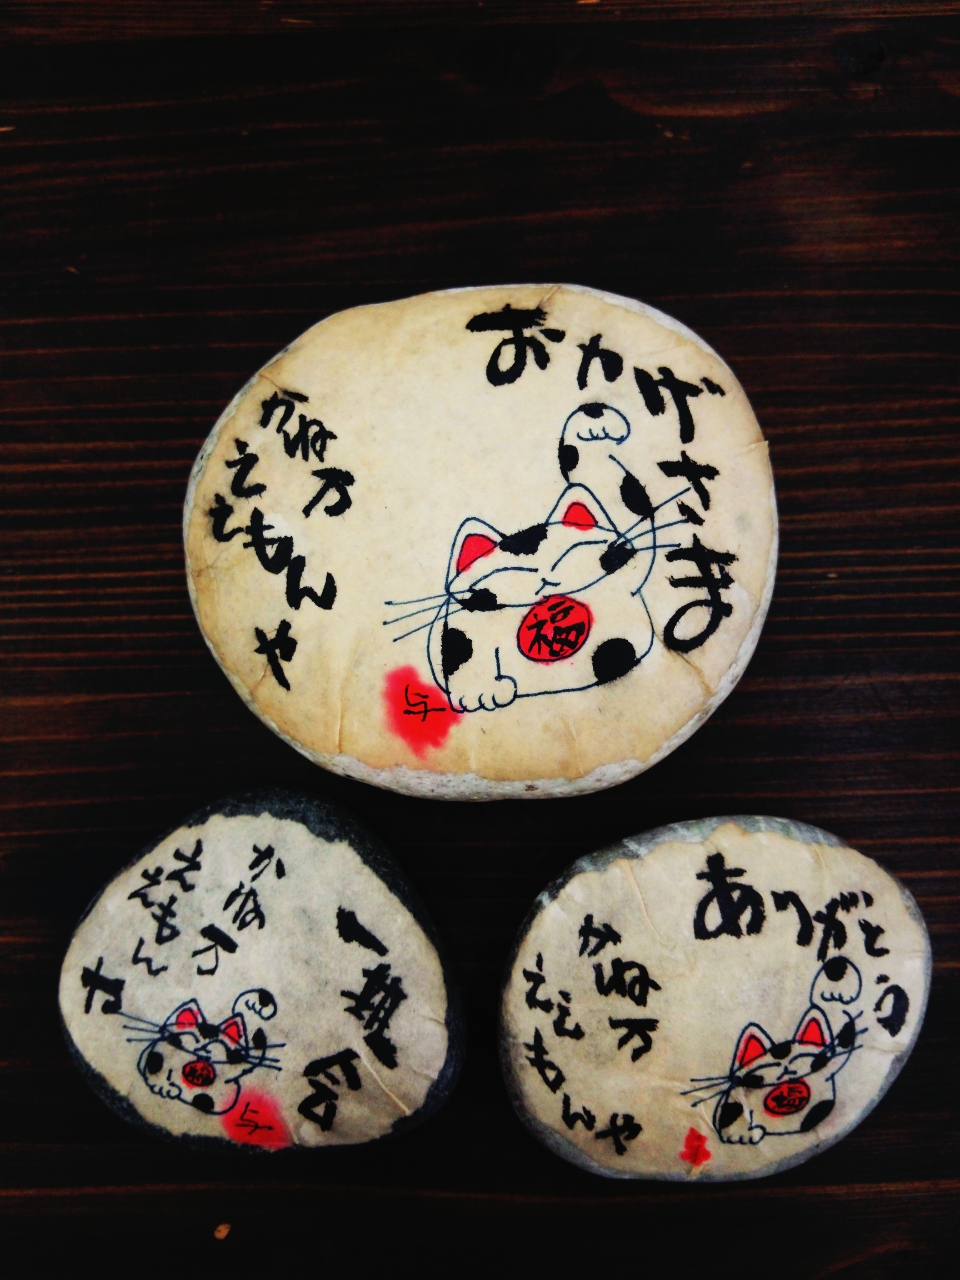 おかげさま
かね万
ええもんや
福
与
一期一会
かね万
ええもんや
福
与
ありがとう
かね万
ええもんや
福